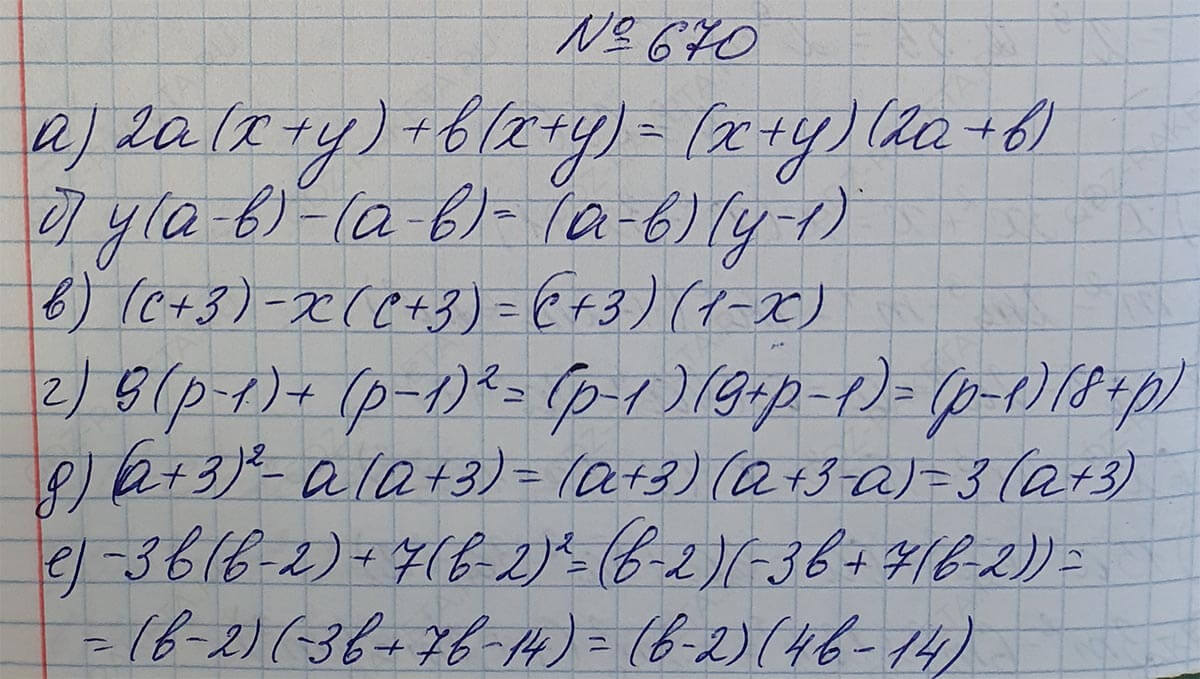 № 670
а) 2a(x+y)+b(x+y)=(x+y)(2a+b)
б) y(a-b)-(a-b)=(a-b)(y-1)
в) (c+3)-x(c+3)=(c+3)(1-x)
г) 9(p-1)+(p-1)²=(p-1)(9+p-1)=(p-1)(8+p)
д) (a+3)²-a(a+3)=(a+3)(a+3-a)=3(a+3)
е) -3b(b-2)+7(b-2)²=(b-2)(-3b+7(b-2))=
=(b-2)(-3b+7b-14)=(b-2)(4b-14)